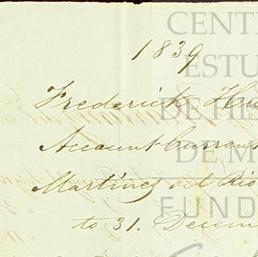 1839
Frederick Hu
Account Curren
Martinez del Rio
to 31. Decem
CENT
ESTU
DE HIS
DE M
FUND